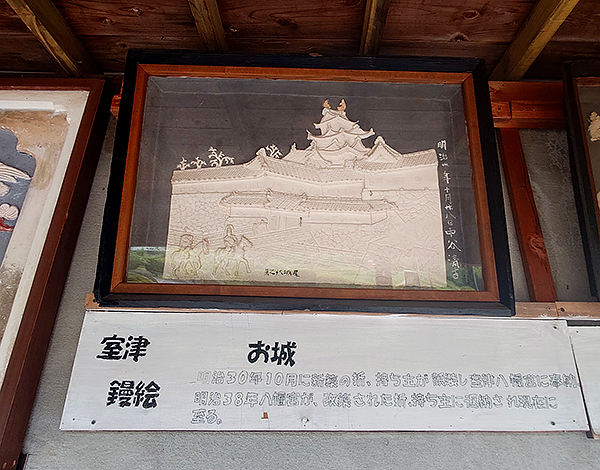 室津 お城
鏝絵
明治30年10月に新築の折、持ち主が 室津八幡宮に奉納
明治38年八幡宮が、改築された折、持ち主に返納され現在に
至る。
明治 年十月廿八日